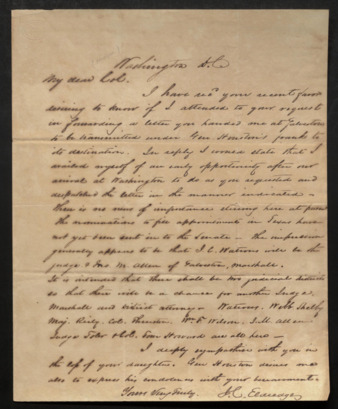 Washington D.C.
My dear Col.
I have rec'd your recent favor
wishing to know if I attended to your request
in forwarding a letter you handed me at Galveston
to be transmitted under Gen Houston's frank to
its destination. In reply I would state that I
availed myself of an early opportunity after our
arrival at Washington to do as you requested and
despatched the letter in the manner indicated -
There is no news of importance stirring here at present
the nominations to fill appointments in Texas have
not yet been sent in to the Senate - the impression
generally appears to be that J. C. Watrous will be the
judge & Jno. M. Allen of Galveston, marshall.
It is intended that there shall be two judicial districts
so that there will be a chance for another Judge,
Marshall and District attorney - Watrous, Webb
Maj. Col. Wm. F. Wilson, Allen
Judge & Col. are all here -
I deeply sympathise with you in
the loss of your daughter. Gen Houston desires me
also to express his condolence with your bereavement.
Yours very truly,